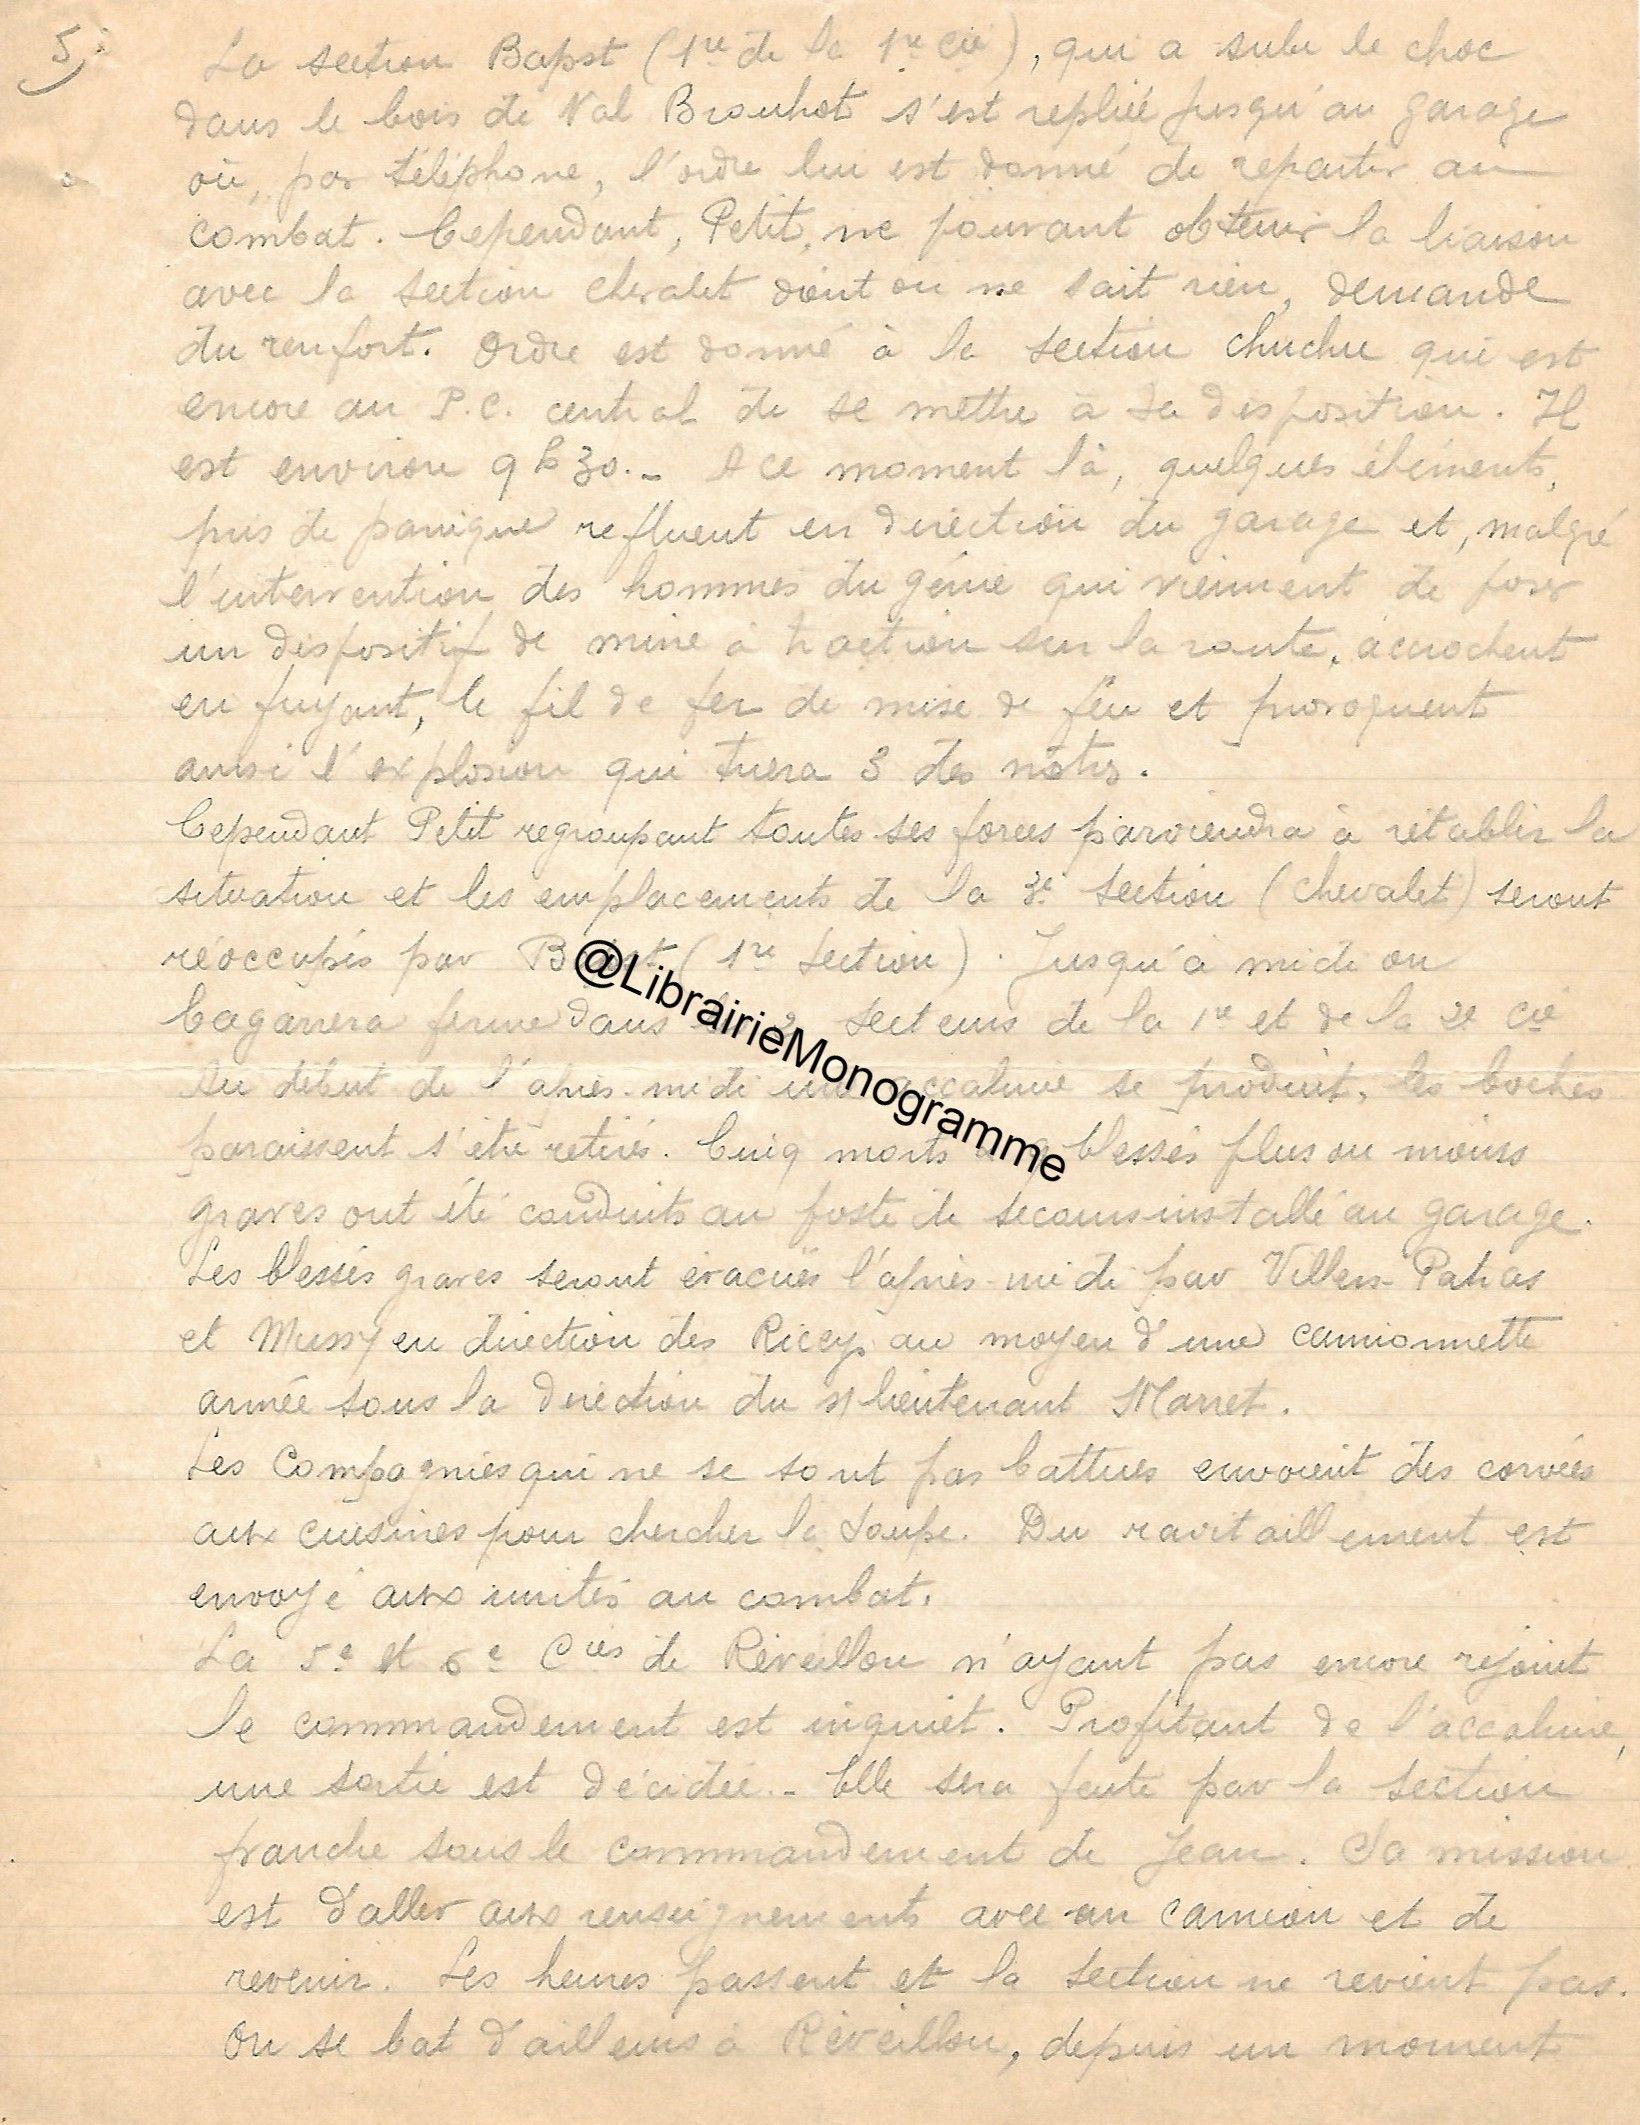 5/
La section Bapst (1re de la 1re Cie), qui a subi le choc
dans le bois de Val Brouhot s'est repliée jusqu'au garage
où, par téléphone, l'ordre lui est donné de repartir au
combat. Cependant, Petit, ne pouvant obtenir la liaison
avec la section Chevalet dont on ne sait rien, demande
du renfort. Ordre est donné à la section Chuchu qui est
encore au P.C. central de se mettre à sa disposition. Il
est environ 9h30._ A ce moment là, quelques éléments,
pris de panique refluent en direction du garage et, malgré
l'intervention des hommes du génie qui viennent de poser
un dispositif de mine à traction sur la route, accrochent
en fuyant, le fil de fer de mise de feu et provoquent
ainsi l'explosion qui tuera 3 des nôtres.
Cependant Petit regroupant toutes ses forces parviendra à rétablir la
situation et les emplacements de la 3e section (Chevalet) seront
réoccupés par Bapst (1re Section). Jusqu'à midi on
bagarrera ferme dans les 2 secteurs de la 1re et de la 2e Cie
Au début de l'après-midi une accalmie se produit, les boches
paraissent s'être retirés. Cinq morts blessés plus ou moins
graves ont été conduits au poste de secours installé au garage.
Les blessés graves seront évacués l'après-midi par Villers-Patras
et Mussy en direction des Riceys au moyen d'une camionnette
armée sous la direction du s/lieutenant Marret.
Les Compagnies qui ne se sont pas battues envoient des corvées
aux cuisines pour chercher la soupe. Du ravitaillement est
envoyé aux unités au combat.
La 5e et 6e Cies de Réveillon n'ayant pas encore rejoint
le commandement est inquiet. Profitant de l'accalmie,
une sortie est décidée._ Elle sera faite par la section
franche sous le commandement de Jean. Sa mission
est d'aller aux renseignements avec un camion et de
revenir. Les heures passent et la section ne revient pas.
On se bat d'ailleurs à Réveillon, depuis un moment
@LibrairieMonogramme